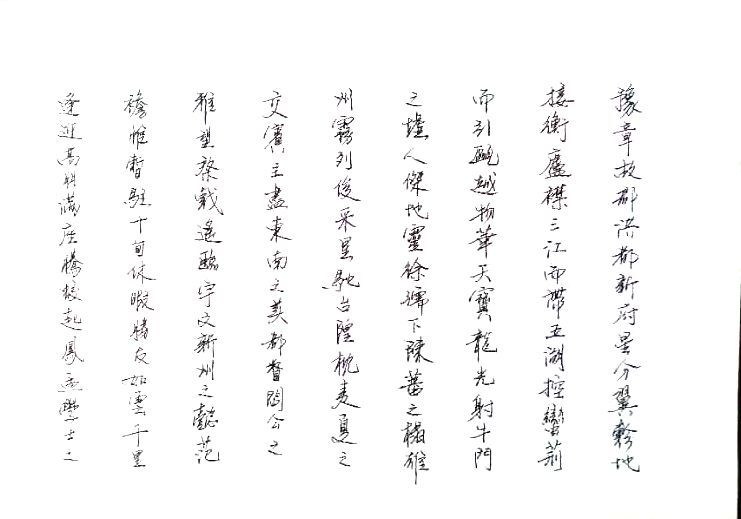 豫章故郡洪都新府星分翼軫地
接衡廬襟三江而帶五湖控蠻荊
而引甌越物華天寶龍光射牛鬥
之墟人傑地靈徐孺下陳蕃之榻雄
州霧列俊采星馳台隍枕夷夏之
交賓主盡東南之美都督閻公之
雅望棨戟遙臨宇文新州之懿范
襜帷暫駐十旬休暇勝友如雲千里
逢迎高朋滿座騰蛟起鳳孟學士之